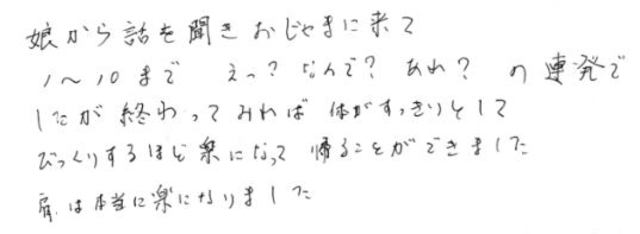 娘から話を聞きおじゃまに来て
1〜10まで えっ?なんで?あれ?の連発で
したが終わってみれば体がすっきりとして
びっくりするほど楽になって帰ることができました
肩は本当に楽になりました